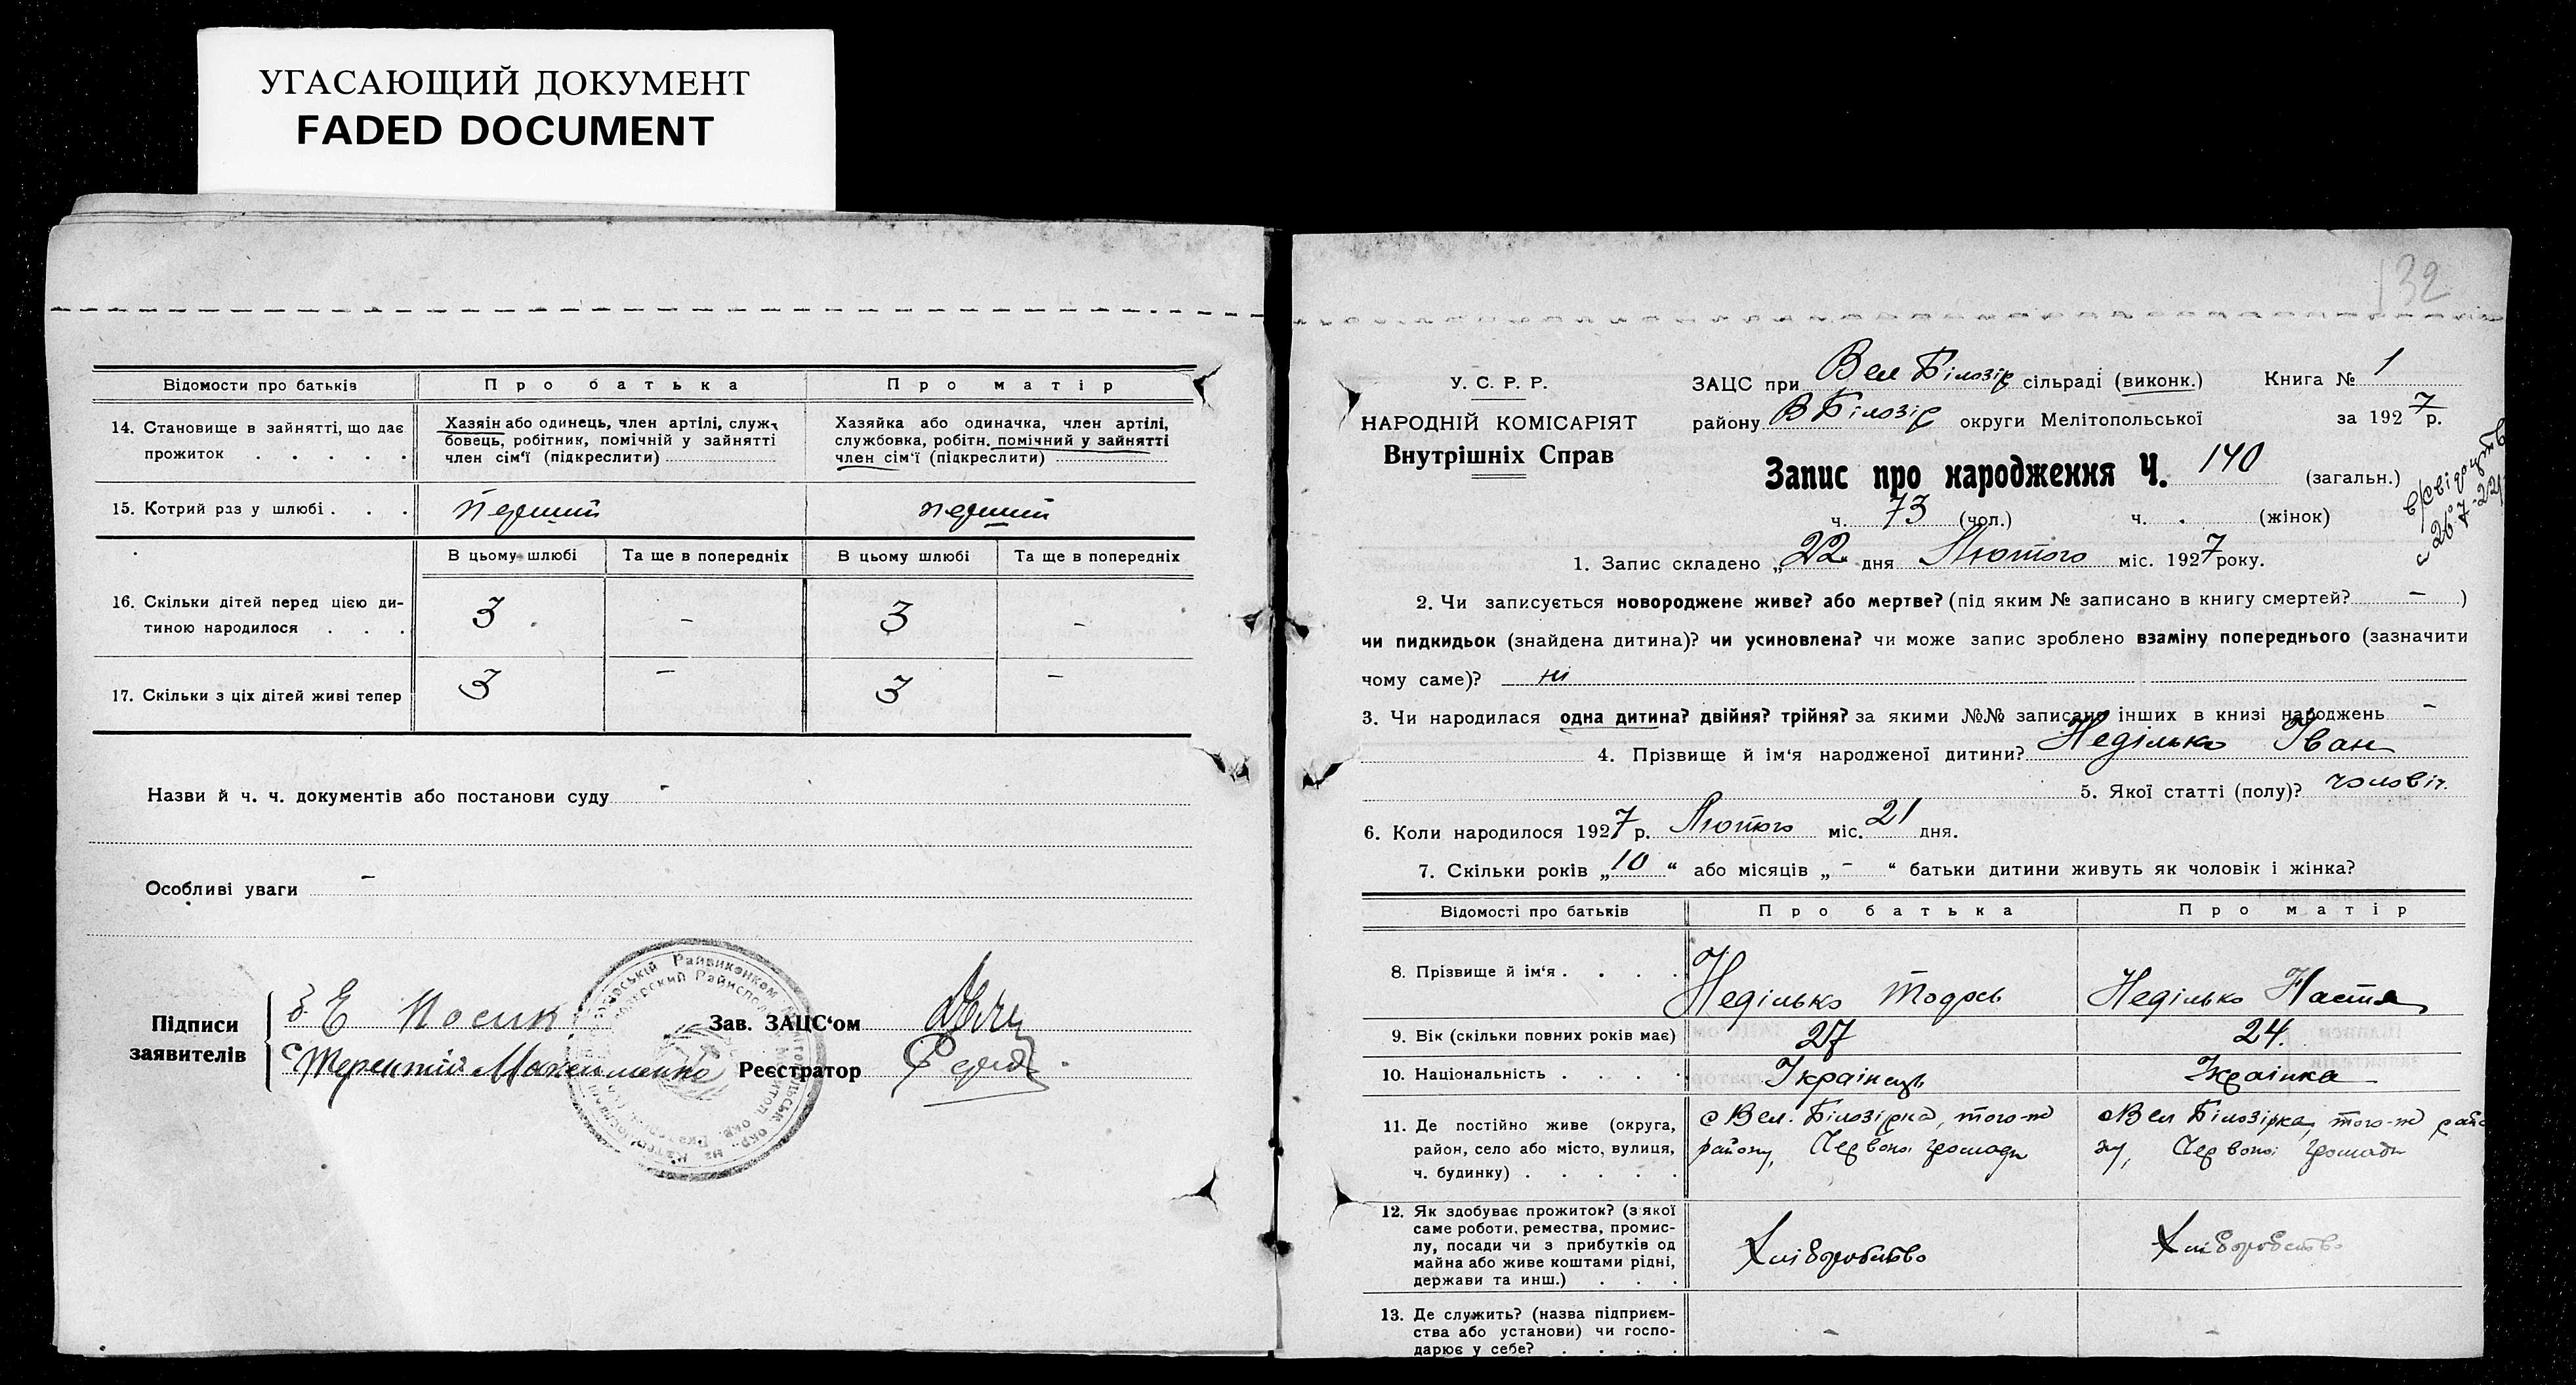 УГАСАЮЩИЙ ДОКУМЕНТ
FADED DOCUMENT
Відомости про батьків | Про батька | Про матір
14. Становище в зайнятті, що дає прожиток . . . . . | Хазяін або одинець, член артілі, службовець, робітник, помічній у зайнятті член сім'ї (підкреслити) | Хазяйка або одиначка, член артілі, службовка, робітн. помічний у зайнятті член сім'ї (підкреслити)
15. Котрий раз у шлюбі . . . | перший | перший
В цьому шлюбі | Та ще в попередніх | В цьому шлюбі | Та ще в попередніх
16. Скільки дітей перед цією ди-
тиною народилося . . . | 3 | - | 3 | -
17. Скільки з ціх дітей живі тепер | 3 | - | 3 | -
Назви й ч. ч. документів або постанови суду -
Особливі уваги -
Підписи заявителів
Е Носик
Терентій Максименко
Зав. ЗАЦС'ом
Реєстратор
132
У. С. Р. Р.
НАРОДНІЙ КОМІСАРІЯТ
Внутрішніх Справ
ЗАЦС при Вел Білозір сільраді (виконк.) Книга № 1
району В Білозір округи Мелітопольської за 1927 р.
Запис про народження Ч. 140 (загальн.)
ч. 73 (чол.) ч. . (жінок)
1. Запис складено „22„ дня Лютого міс. 1927 року.
2. Чи записується новороджене живе? або мертве? (під яким № записано в книгу смертей? - )
чи пидкидьок (знайдена дитина)? чи усиновлена? чи може запис зроблено взаміну попереднього (зазначити
чому саме)? ні
3. Чи народилася одна дитина? двійня? трійня? за якими №№ записано інших в книзі народжень -
4. Прізвище й ім'я народженої дитини? Неділько Іван
5. Якої статті (полу)? чоловіч.
6. Коли народилося 1927 р. Лютого міс. 21 дня.
7. Скільки років „10“ або місяців „ - “ батьки дитини живуть як чоловік і жінка?
Відомості про батьків | Про батька | Про матір
8. Прізвище й ім'я . . . . | Неділько Тодось | Неділько Настя
9. Вік (скільки повних років має) | 27 | 24.
10. Національність . . . . | Українець | Українка
11. Де постійно живе (округа,
район, село або місто, вулиця,
ч. будинку) . . . . . | с Вел. Білозірка, того-ж
району, Червоної громади | с Вел Білозірка, того-ж райо
ну, Червоної громади
12. Як здобуває прожиток? (з якої
саме роботи, ремества, промис-
лу, посади чи з прибутків од
майна або живе коштами рідні,
держави та инш.) . . . | Хліборобство | Хліборобство
13. Де служить? (назва підприєм-
ства або установи) чи госпо-
дарює у себе? . . . . | - | -